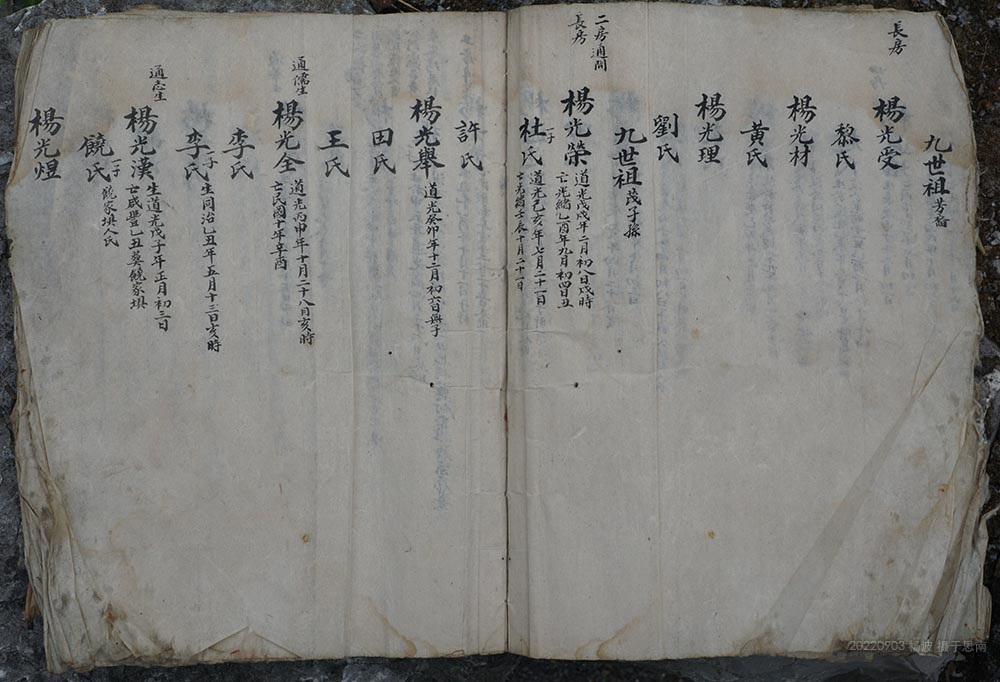 九世祖 芳裔
長房
楊光受
黎氏
楊光材
黃氏
楊光理
劉氏
九世祖 茂子孫
二房通問
長房
楊光榮 道光戊戌年二月初八日戌時
亡光緒乙酉年九月初四日丑
杜氏 一子 道光己亥年七月二十一日
亡光緒壬辰十月二十一日
許氏
楊光舉 道光癸卯年十二月初六日與子
田氏
王氏
通儒生
楊光全 道光丙申年十月二十八月亥時
亡民國十年辛酉
李氏
李氏 二子 生同治乙丑年五月十三日亥時
通志生
楊光漢 生道光戊子年正月初三日
亡咸豐乙丑葬饒家垻
饒氏 一子 饒家垻人氏
楊光煜
20220903 楊波 摄于思南